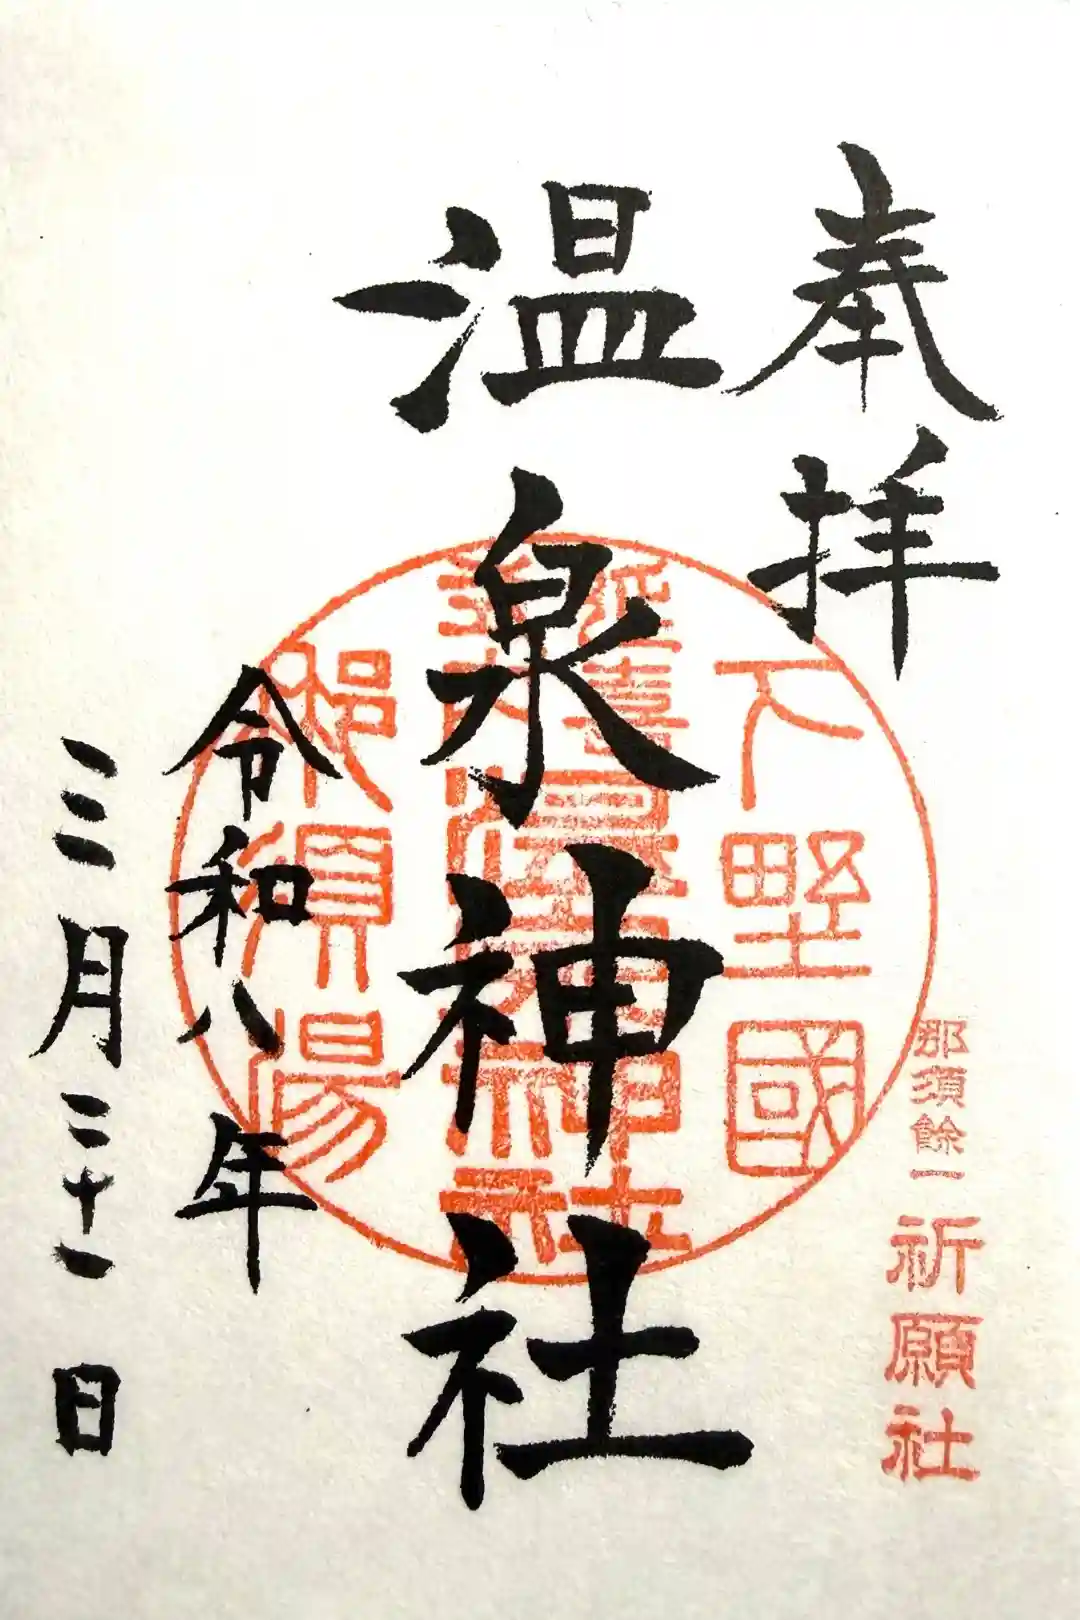 奉拝
那須餘一
祈願社
温泉神社
下野國
延喜
式内
温泉神社
那須湯
令和八年
三月二十一日